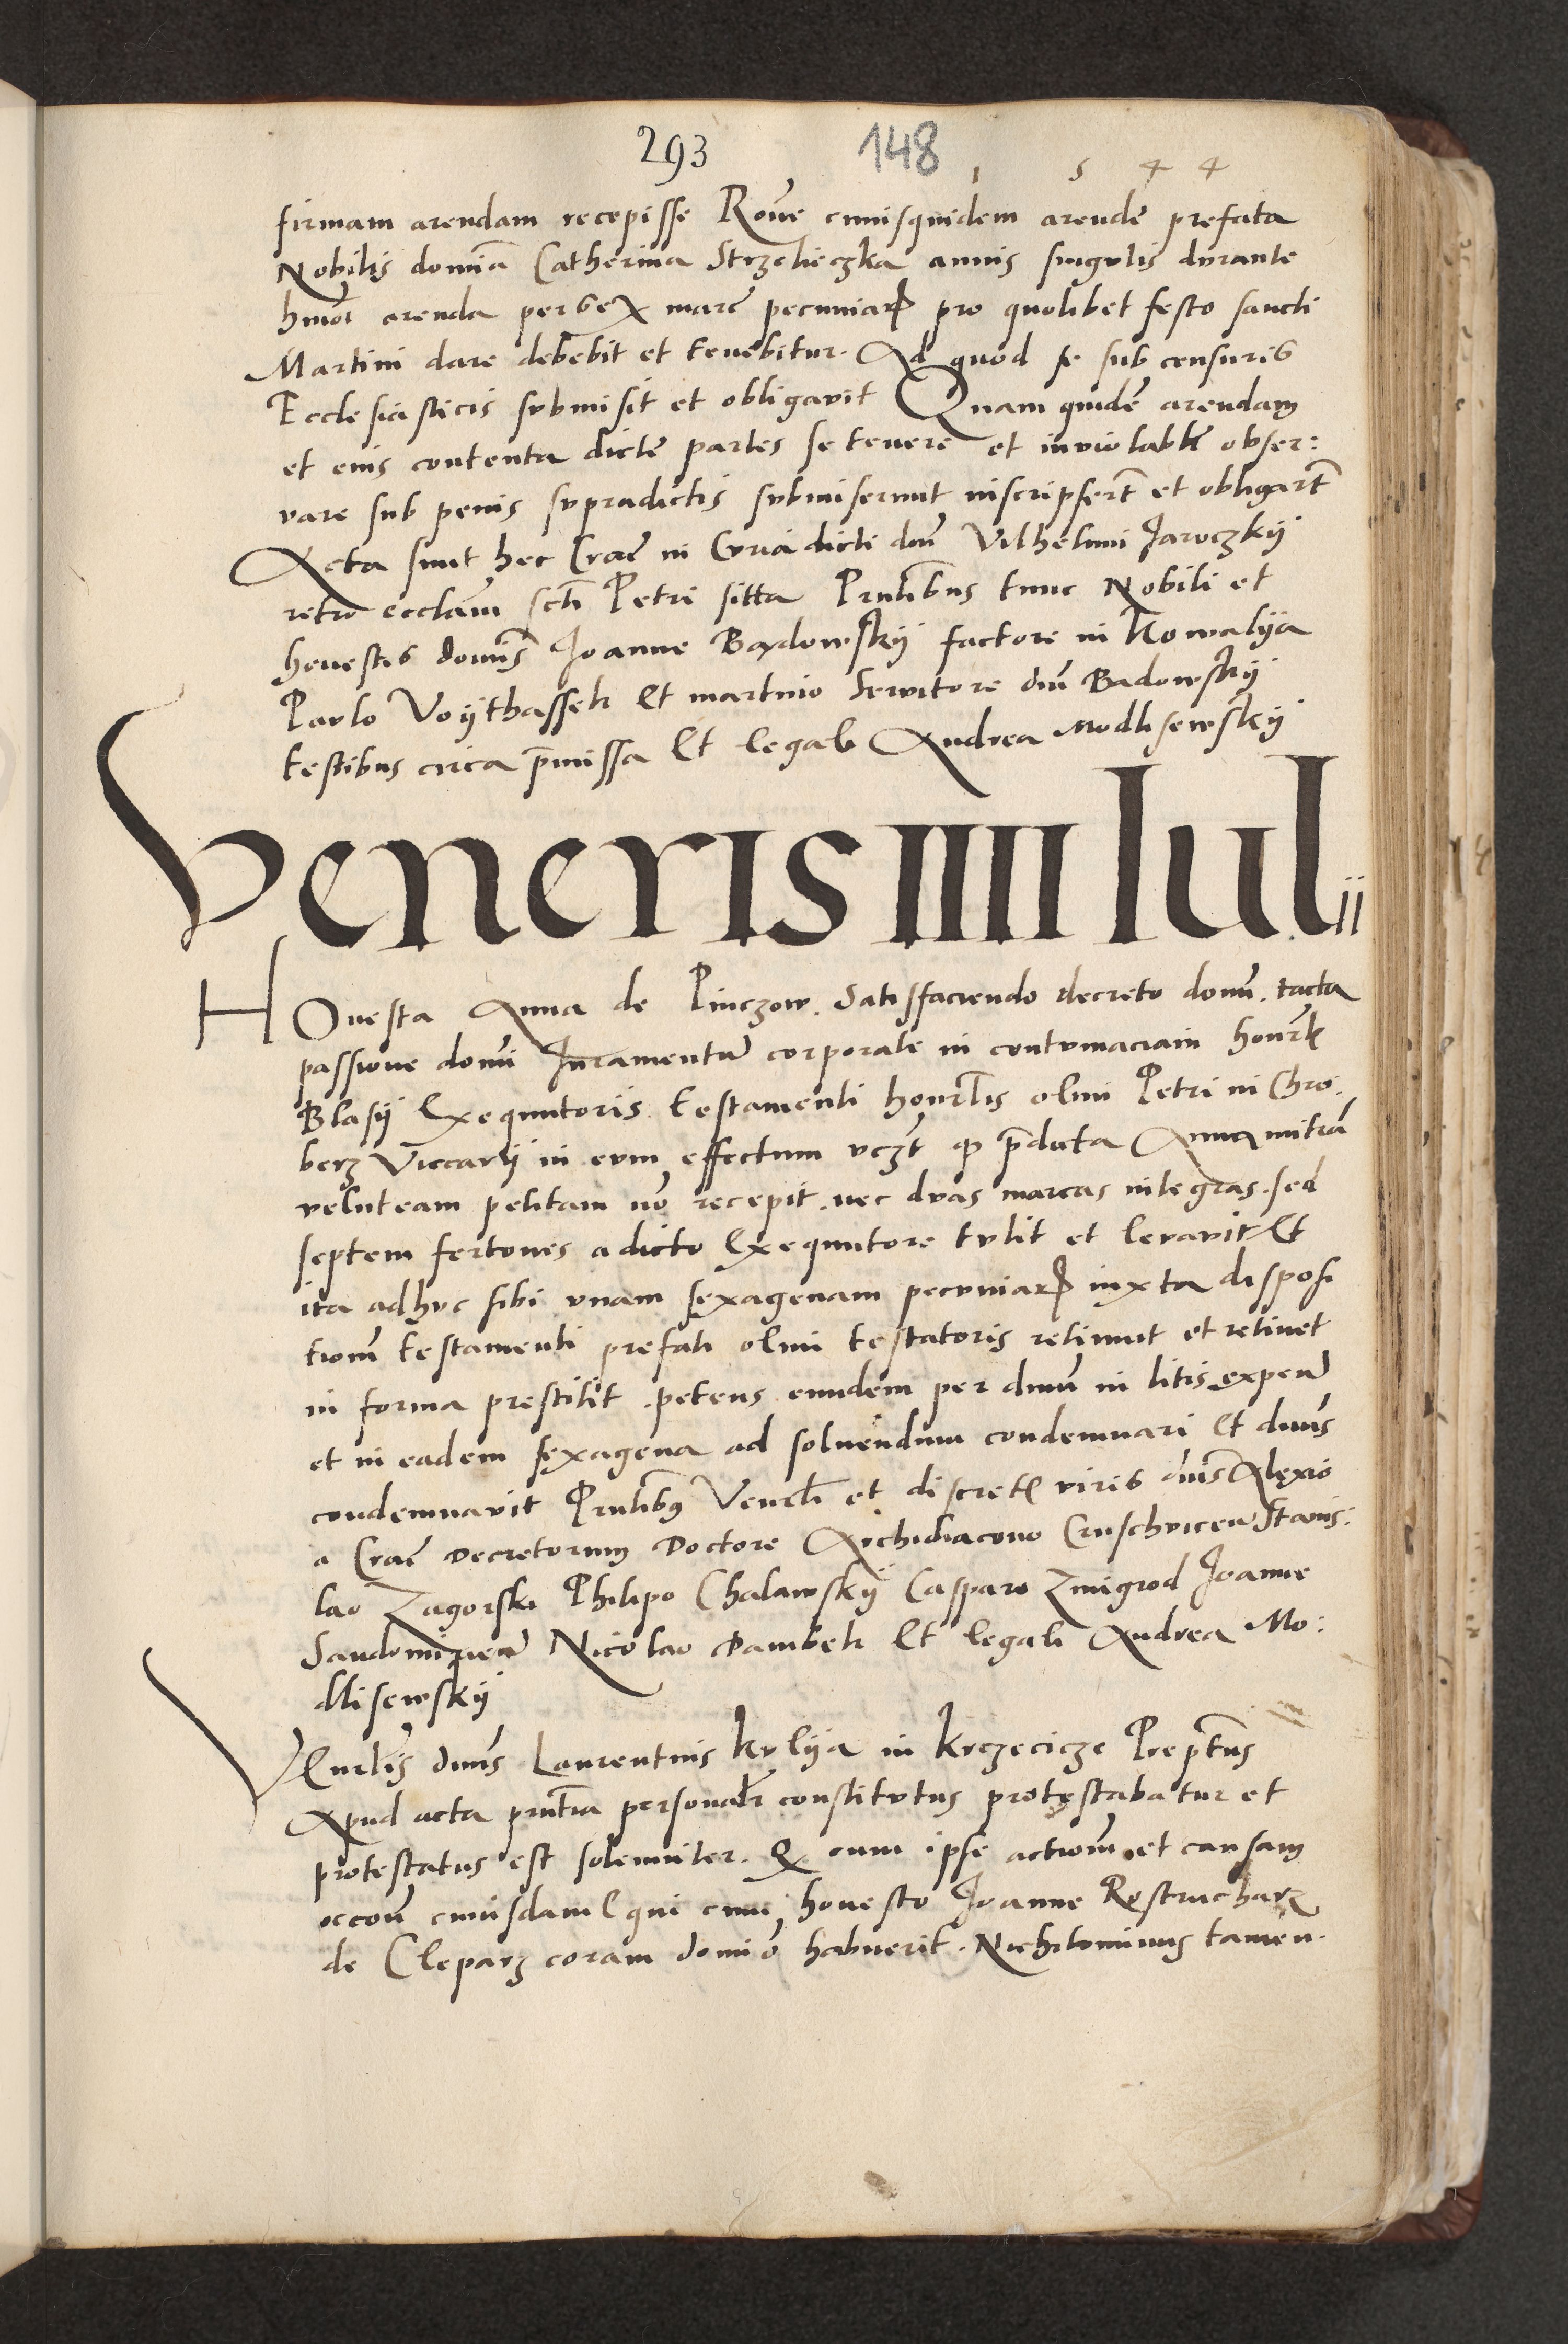 293 148 1 5 4 4
firmam arendam recepisse Rone cuiusquidem arende prefata
Nobilis domina Catherina Strzelieczka annis singulis durante
hmoi arenda per sex marc pecuniar pro quolibet festo sancti
Martini dare debebit et tenebitur. Ad quod se sub censuris
Ecclesiasticis submisit et obligavit Quam quide arendam
et eius contenta dicte partes se tenere et inviolabile obser:
vare sub penis supradictis submiserunt inscripsert et obligart
Acta sunt hec Crac in Curia dicti dni Vilhelmi Jaroczkij
retro ecclam scti Petri sitta Pntibus tunc Nobili et
honestis domis Joanne Badowskij factore in Kowalija
Paulo Voijthassek Et martino Servitore dni Badowskij
testibus circa pmissa Et legali Andrea Modlisewskij
Veneris IIII Iulii
HOnesta Anna de Pinczow. Satisfaciendo decreto domi. tacta
passione domi Juramentu corporale in contumaciam honor
Blasij Exequutoris testamenti honorlis olim Petri in Chro.
berz Viccarij in eum effectum vczt q pdicta Anna mitra
veluteam petitam no recepit. nec duas marcas integras. sed
septem fertones a dicto Exequutore tulit et levavit Et
ita adhuc sibi unam sexagenam pecuniar iuxta disposi
tiom testamenti prefati olim testatoris retinuit et retinet
in forma prestitit. petens eundem per dnum in litis expen
et in eadem sexagena ad solvendum condemnari Et dnus
condemnavit Pntibus Venerli et discret viris dnis Alexio
a Crac decretorum Doctore Archidiacono Cruschvicen Stanis:
lao Zagorski Philipo Chalawskij Casparo Zmigrod Joanne
Sandomirien Nicolao Dambek Et legali Andrea Mo:
dlisewskij
VEnrlis dnus Laurentius kulija in krczecicze Preptus
Apud acta pntia personalr constitutus protestabatur et
protestatus est solemniter. Q cum ipse actiom et causam
occon cuiusdam equi cum honesto Joanne Rostrucharz
de Cleparz coram domio habuerit. Nichilominus tamen.